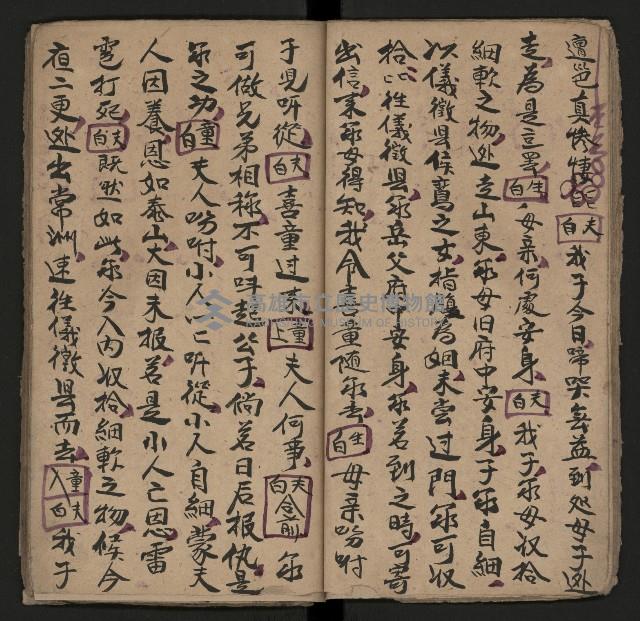 真慘悽 夫白 我子今日啼哭無益到処母子逃
走為是 生白 母亲何處安身 夫白 我子尔母収拾
細軟之物逃走山東尔母旧府中安身子尔自細
以儀徵县侯鸞之女指為姻未曾过門尔可収
拾往儀徵县尔岳父府安身尔若到之時可寄
出信來尔母得知我令喜童随尔去 生白 母亲吩咐
子児听從 夫白 喜童过來 童上 夫人何事 夫白 念前 尔
可做兄弟相称不可叫起公子倘若日后报仇是
尔之功 童白 夫人吩咐小人亡听從小人自細蒙夫
人因養恩如泰山大因未报若是小人亡恩雷
打死 夫白 既然如此尔今入內収拾細軟之物候今
夜二更逃出常洲速往儀徵县而去 童入 夫白 我子
高雄市立歷史博物館
KAOHSIUNG MUSEUM OF HISTORY